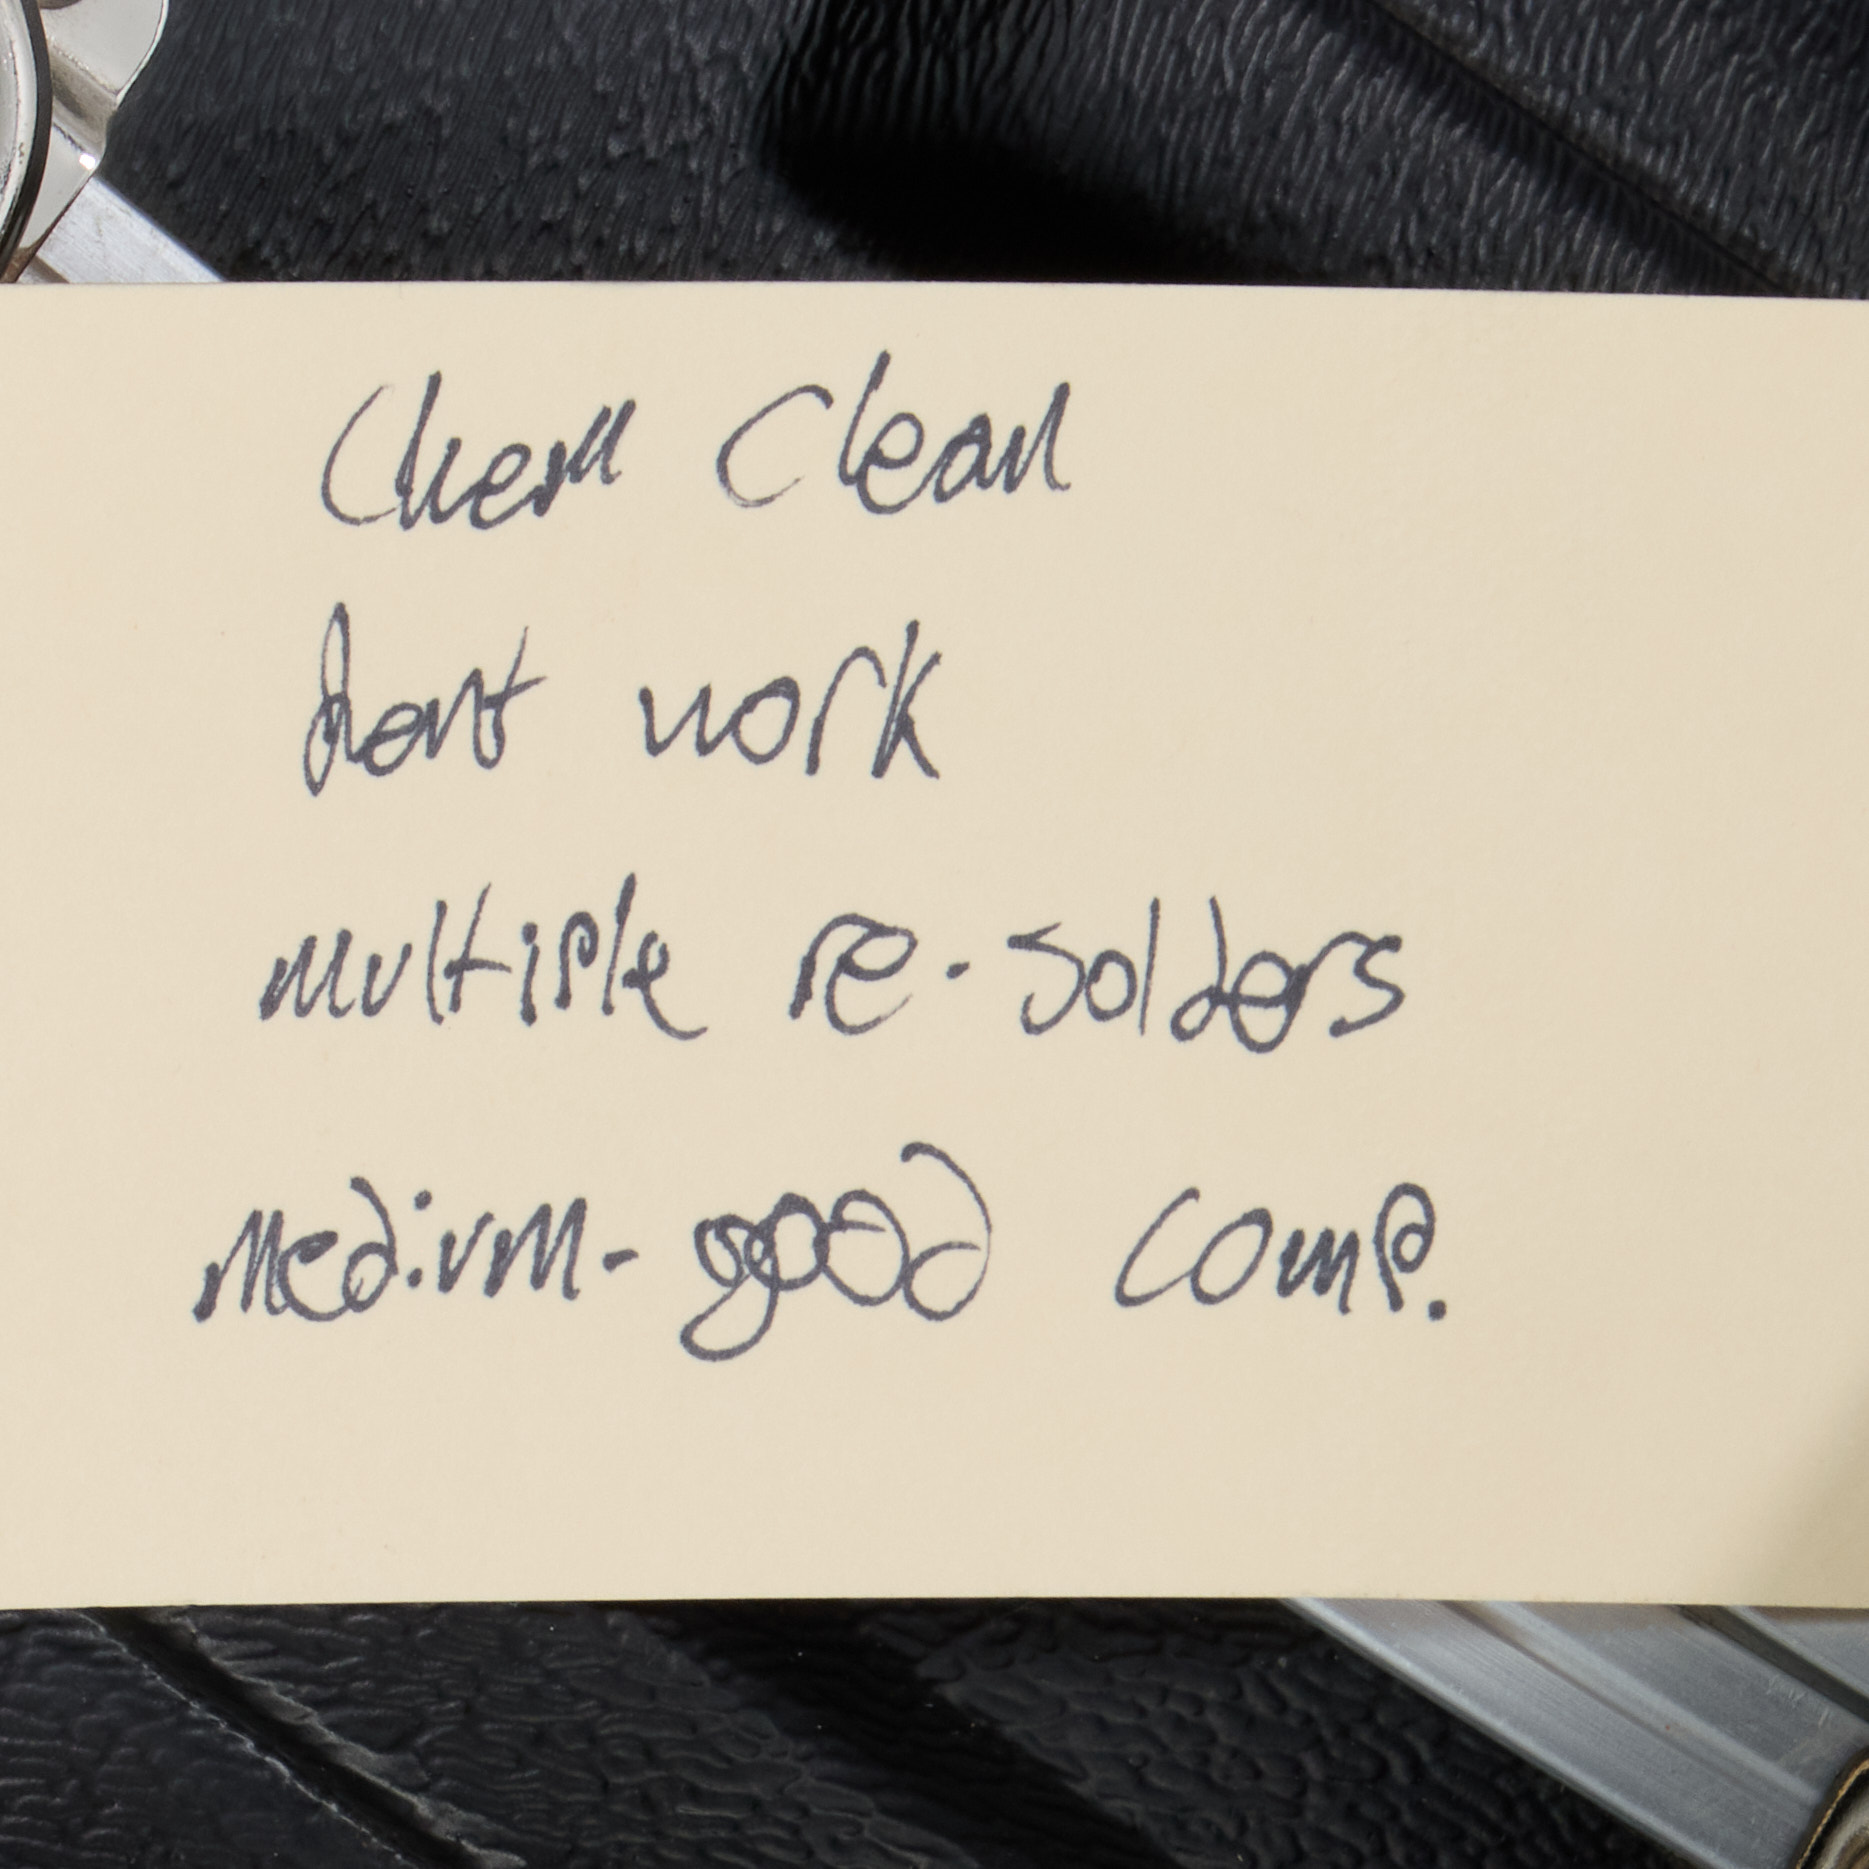 Chem Clean
dent work
multiple re-solders
medium-good comp.